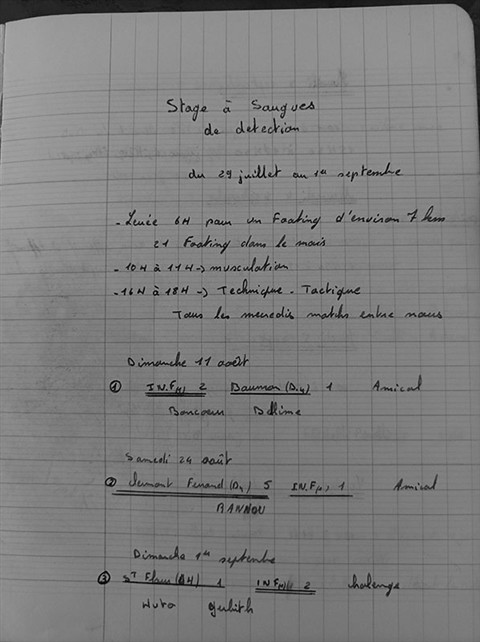 Stage à Saugues
de detection
du 29 juillet au 1er septembre
- Levée 6H pour un Footing d'environ 7 km
21 Footing dans le mois
- 10H à 11H -> musculation
- 16H à 18H -> Technique - Tactique
Tous les mecredis matchs entre nous
Dimanche 11 août
① I.N.F 2 (D.4) 1 Amical
Samedi 24 août
② Clermont Ferrand (D4) 5 I.N.F 1 Amical
Dimanche 1er septembre
③ ST Flour (DH) 1 I.N.F 2 chalenge